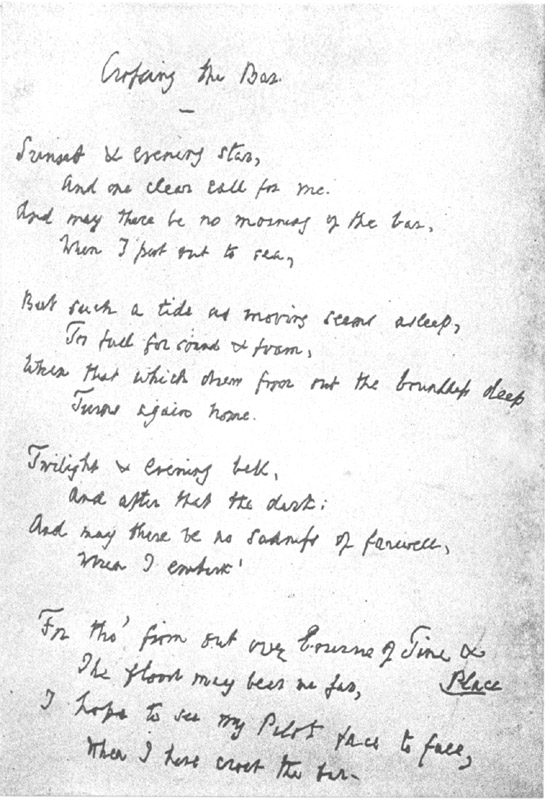 Crossing the Bar.
Sunset & evening star,
And one clear call for me.
And may there be no moaning of the bar,
When I put out to sea,
But such a tide as moving seems asleep,
Too full for sound & foam,
When that which drew from out the boundless deep
Turns again home.
Twilight & evening bell,
And after that the dark;
And may there be no sadness of farewell,
When I embark!
For tho' from out our bourne of Time &
Place
The flood may bear me far,
I hope to see my Pilot face to face,
When I have crost the bar.